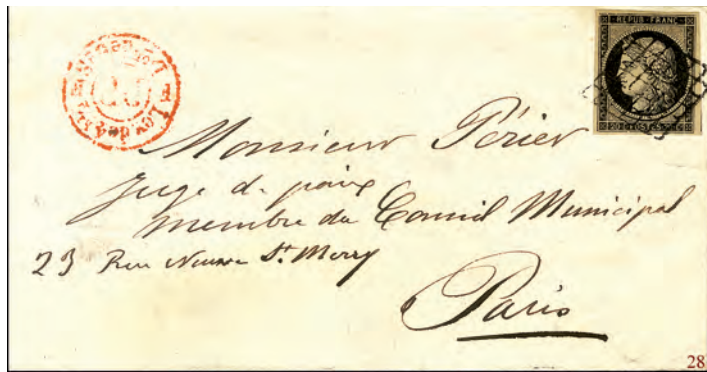 REPUB. FRANC.
POSTES
Monsieur Périer
Juge de paix
membre du Conseil Municipal
23 Rue Neuve St. Merry
Paris
28